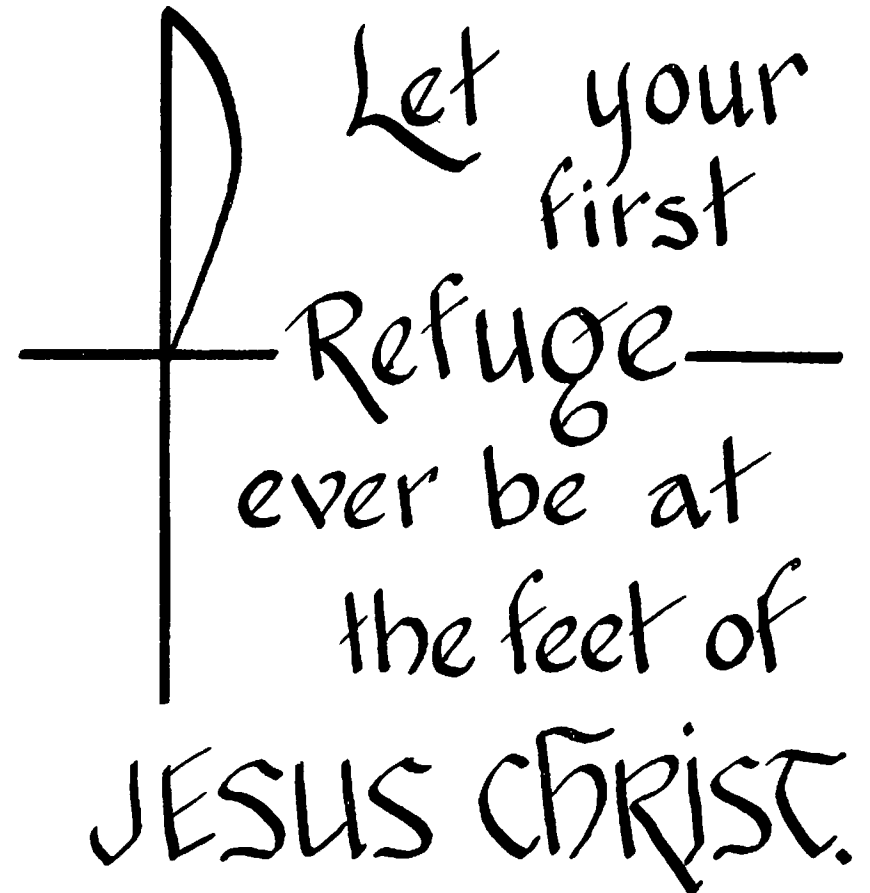 Let your
first
Refuge
ever be at
the feet of
JESUS CHRIST.